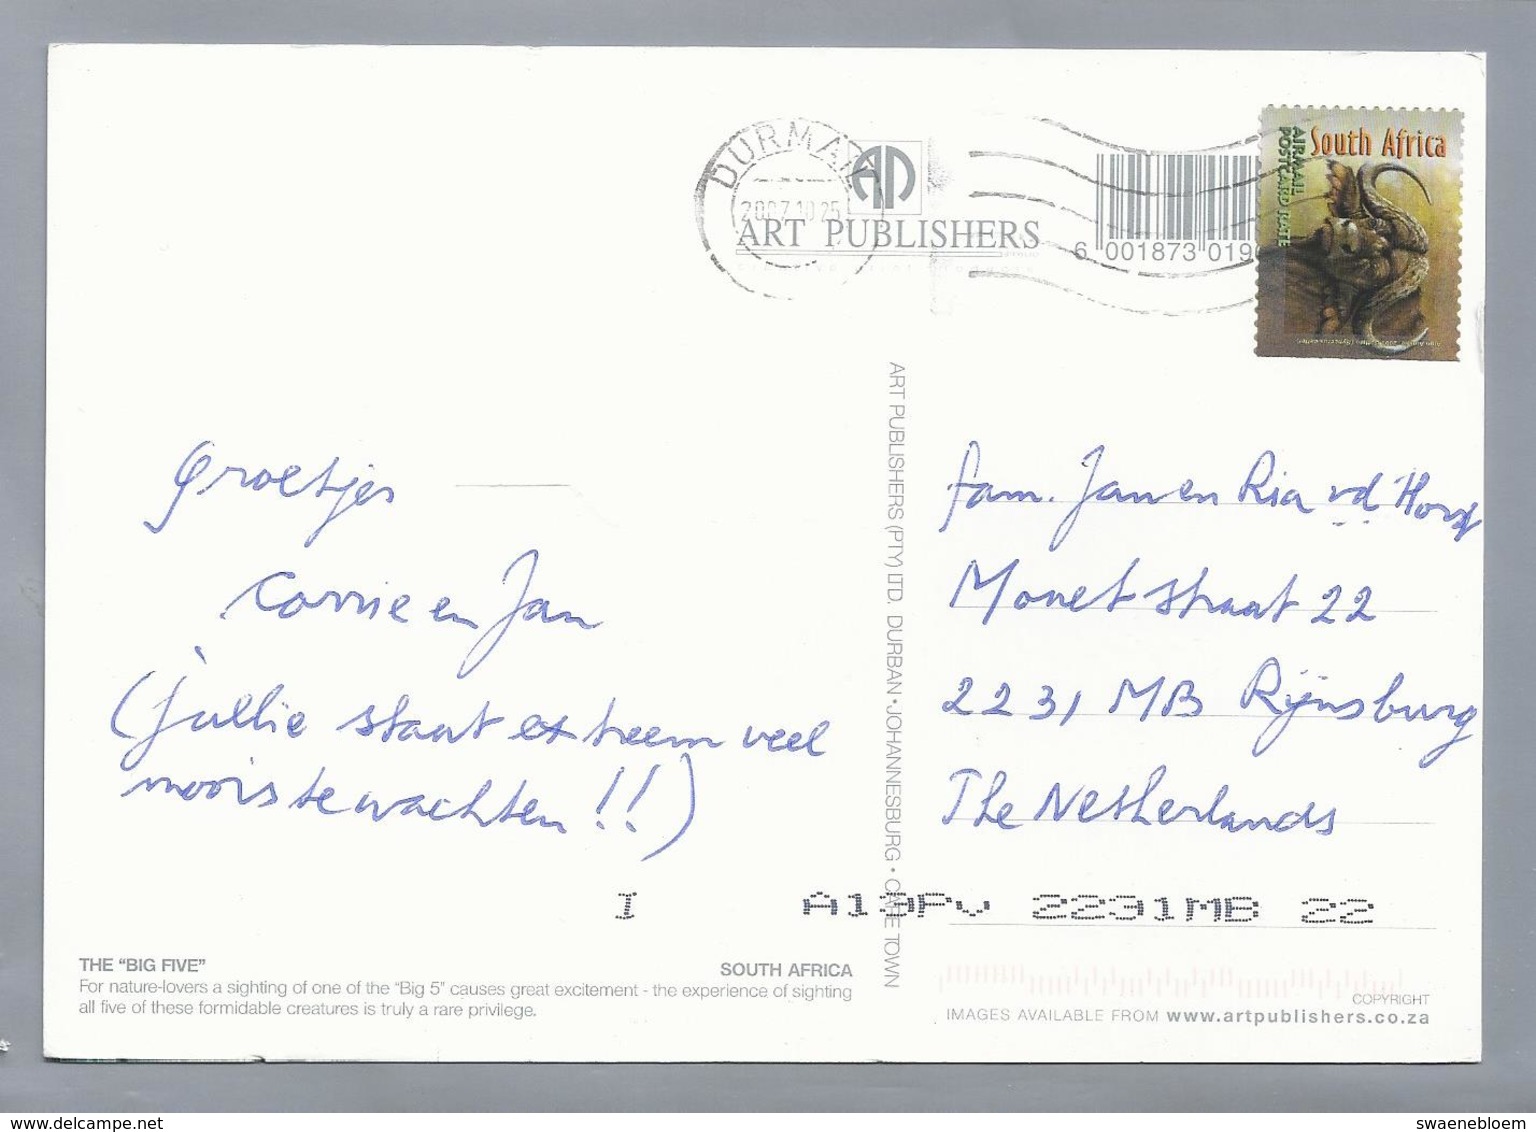 DURMAIL
2007 10 25
ART PUBLISHERS
6 001873 019
South Africa
AIRMAIL
POSTCARD RATE
Groetjes
Corrie en Jan
(jullie staat extreem veel
moois te wachten!!)
ART PUBLISHERS (PTY) LTD. DURBAN • JOHANNESBURG • CAPE TOWN
fam. Jan en Ria vd Horst
Monetstraat 22
2231 MB Rijnsburg
The Netherlands
I A13PV 2231MB 22
THE “BIG FIVE” SOUTH AFRICA
For nature-lovers a sighting of one of the “Big 5” causes great excitement - the experience of sighting
all five of these formidable creatures is truly a rare privilege.
COPYRIGHT
IMAGES AVAILABLE FROM www.artpublishers.co.za
www.delcampe.net
swaenebloem